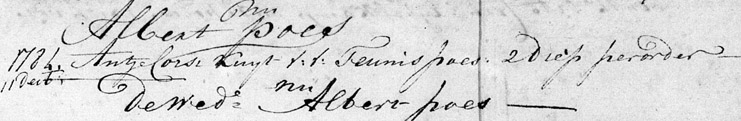 nu
Albert poes
1784. Antz: Corsz Kuyt v: v: Teunis poes: 2 diep per order
11 Decbr:
nu
De Wede: Albert poes